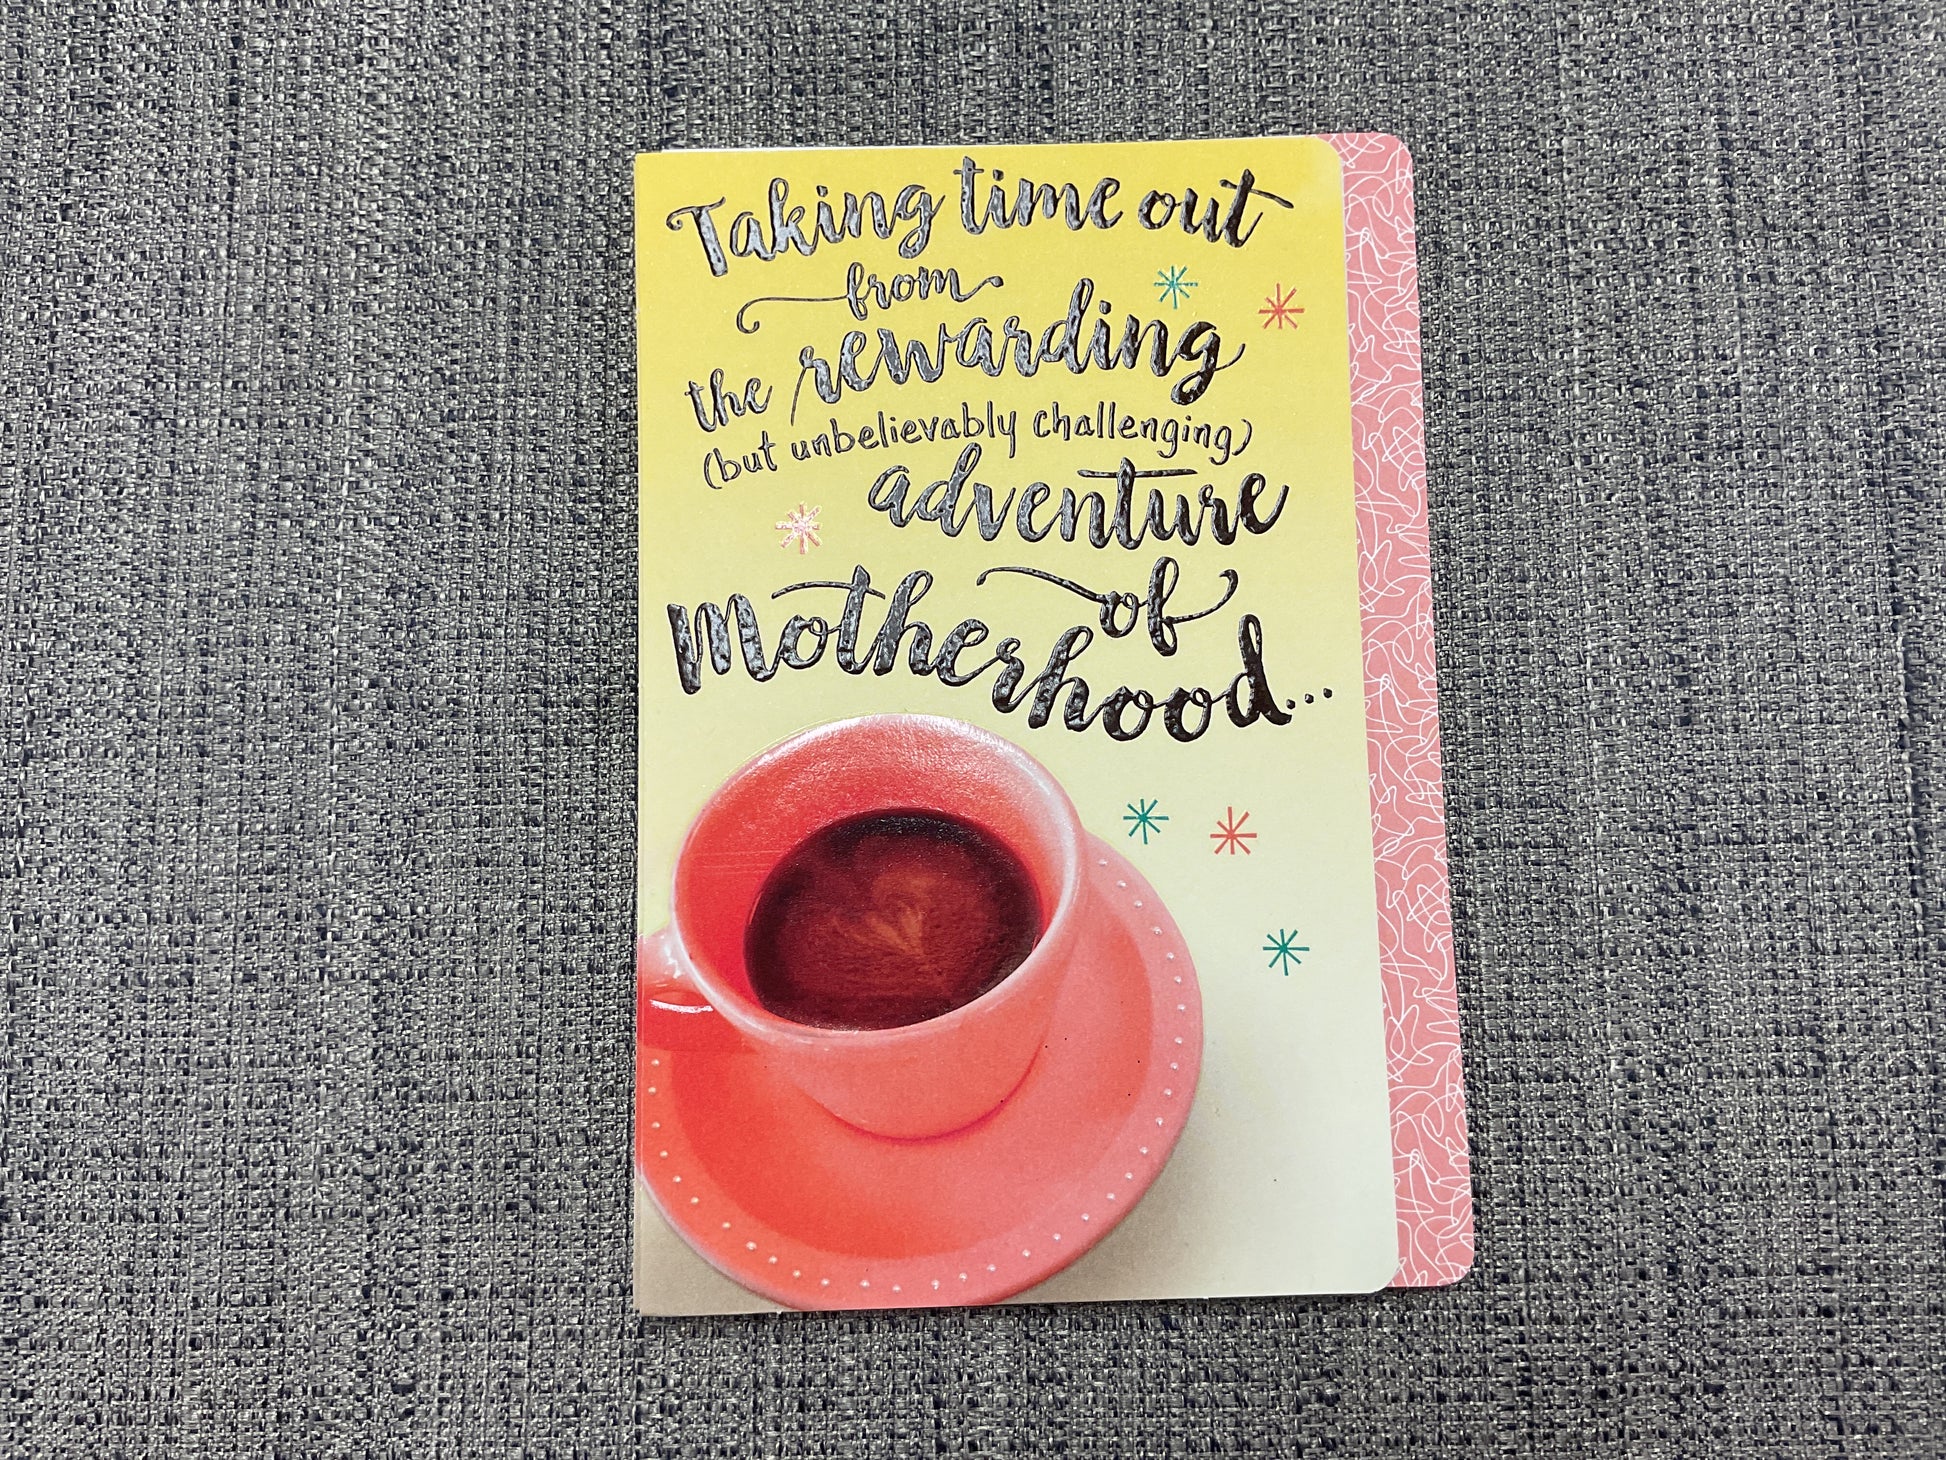 Taking time out
from
the rewarding
(but unbelievably challenging)
adventure
of
Motherhood...